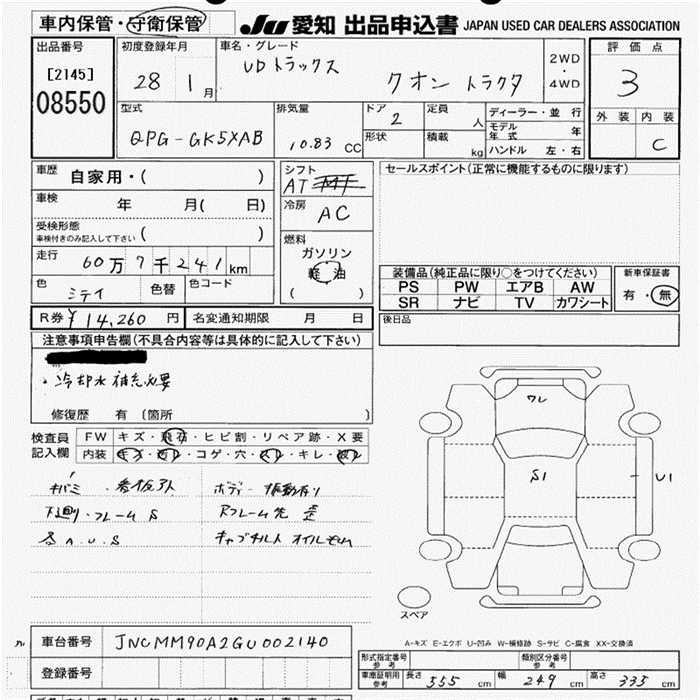 車内保管・守衛保管 JU 愛知 出品申込書 JAPAN USED CAR DEALERS ASSOCIATION
出品番号
[2145]
08550
初度登録年月
28 1月
車名・グレード
UDトラックス
クオン トラクタ
2WD
・
4WD
評価点
3
外装 内装
C
型式
QPG-GK5XAB
排気量
10.83 CC
ドア
2
形状
定員
人
積載
kg
ディーラー・並行
モデル年式 年
ハンドル 左・右
車歴 自家用・( )
車検 年 月( 日)
受検形態
車検付きのみ記入して下さい ( )
走行 60万7千241km
色 ミテイ 色替 色コード
シフト
AT MT
冷房
AC
燃料
ガソリン
軽油
( )
セールスポイント(正常に機能するものに限ります)
装備品(純正品に限り○をつけてください)
PS PW エアB AW
SR ナビ TV カワシート
新車保証書
有・無
後日品
R券 ¥14,260 円 名変通知期限 月 日
注意事項申告欄(不具合内容等は具体的に記入して下さい)
・冷却水補充必要
修復歴 有 (箇所 )
検査員記入欄
FW キズ・飛石・ヒビ割・リペア跡・X要
内装 キズ・汚レ・コゲ・穴・スレ・キレ・破レ
キバミ ・看板アト
下廻り・フレームS
各A.U.S
ボディー 振動有り
Rフレーム先 歪
キャブチルト オイルモレ
ワレ
S1
U1
スペア
A-キズ E-エクボ U-凹み W-補修跡 S-サビ C-腐食 XX-交換済
車台番号 JNCMM90A2GU002140
登録番号
形式指定番号 参考
類別区分番号 参考
車庫証明用 参考 長さ 555 cm 幅 249 cm 高さ 335 cm